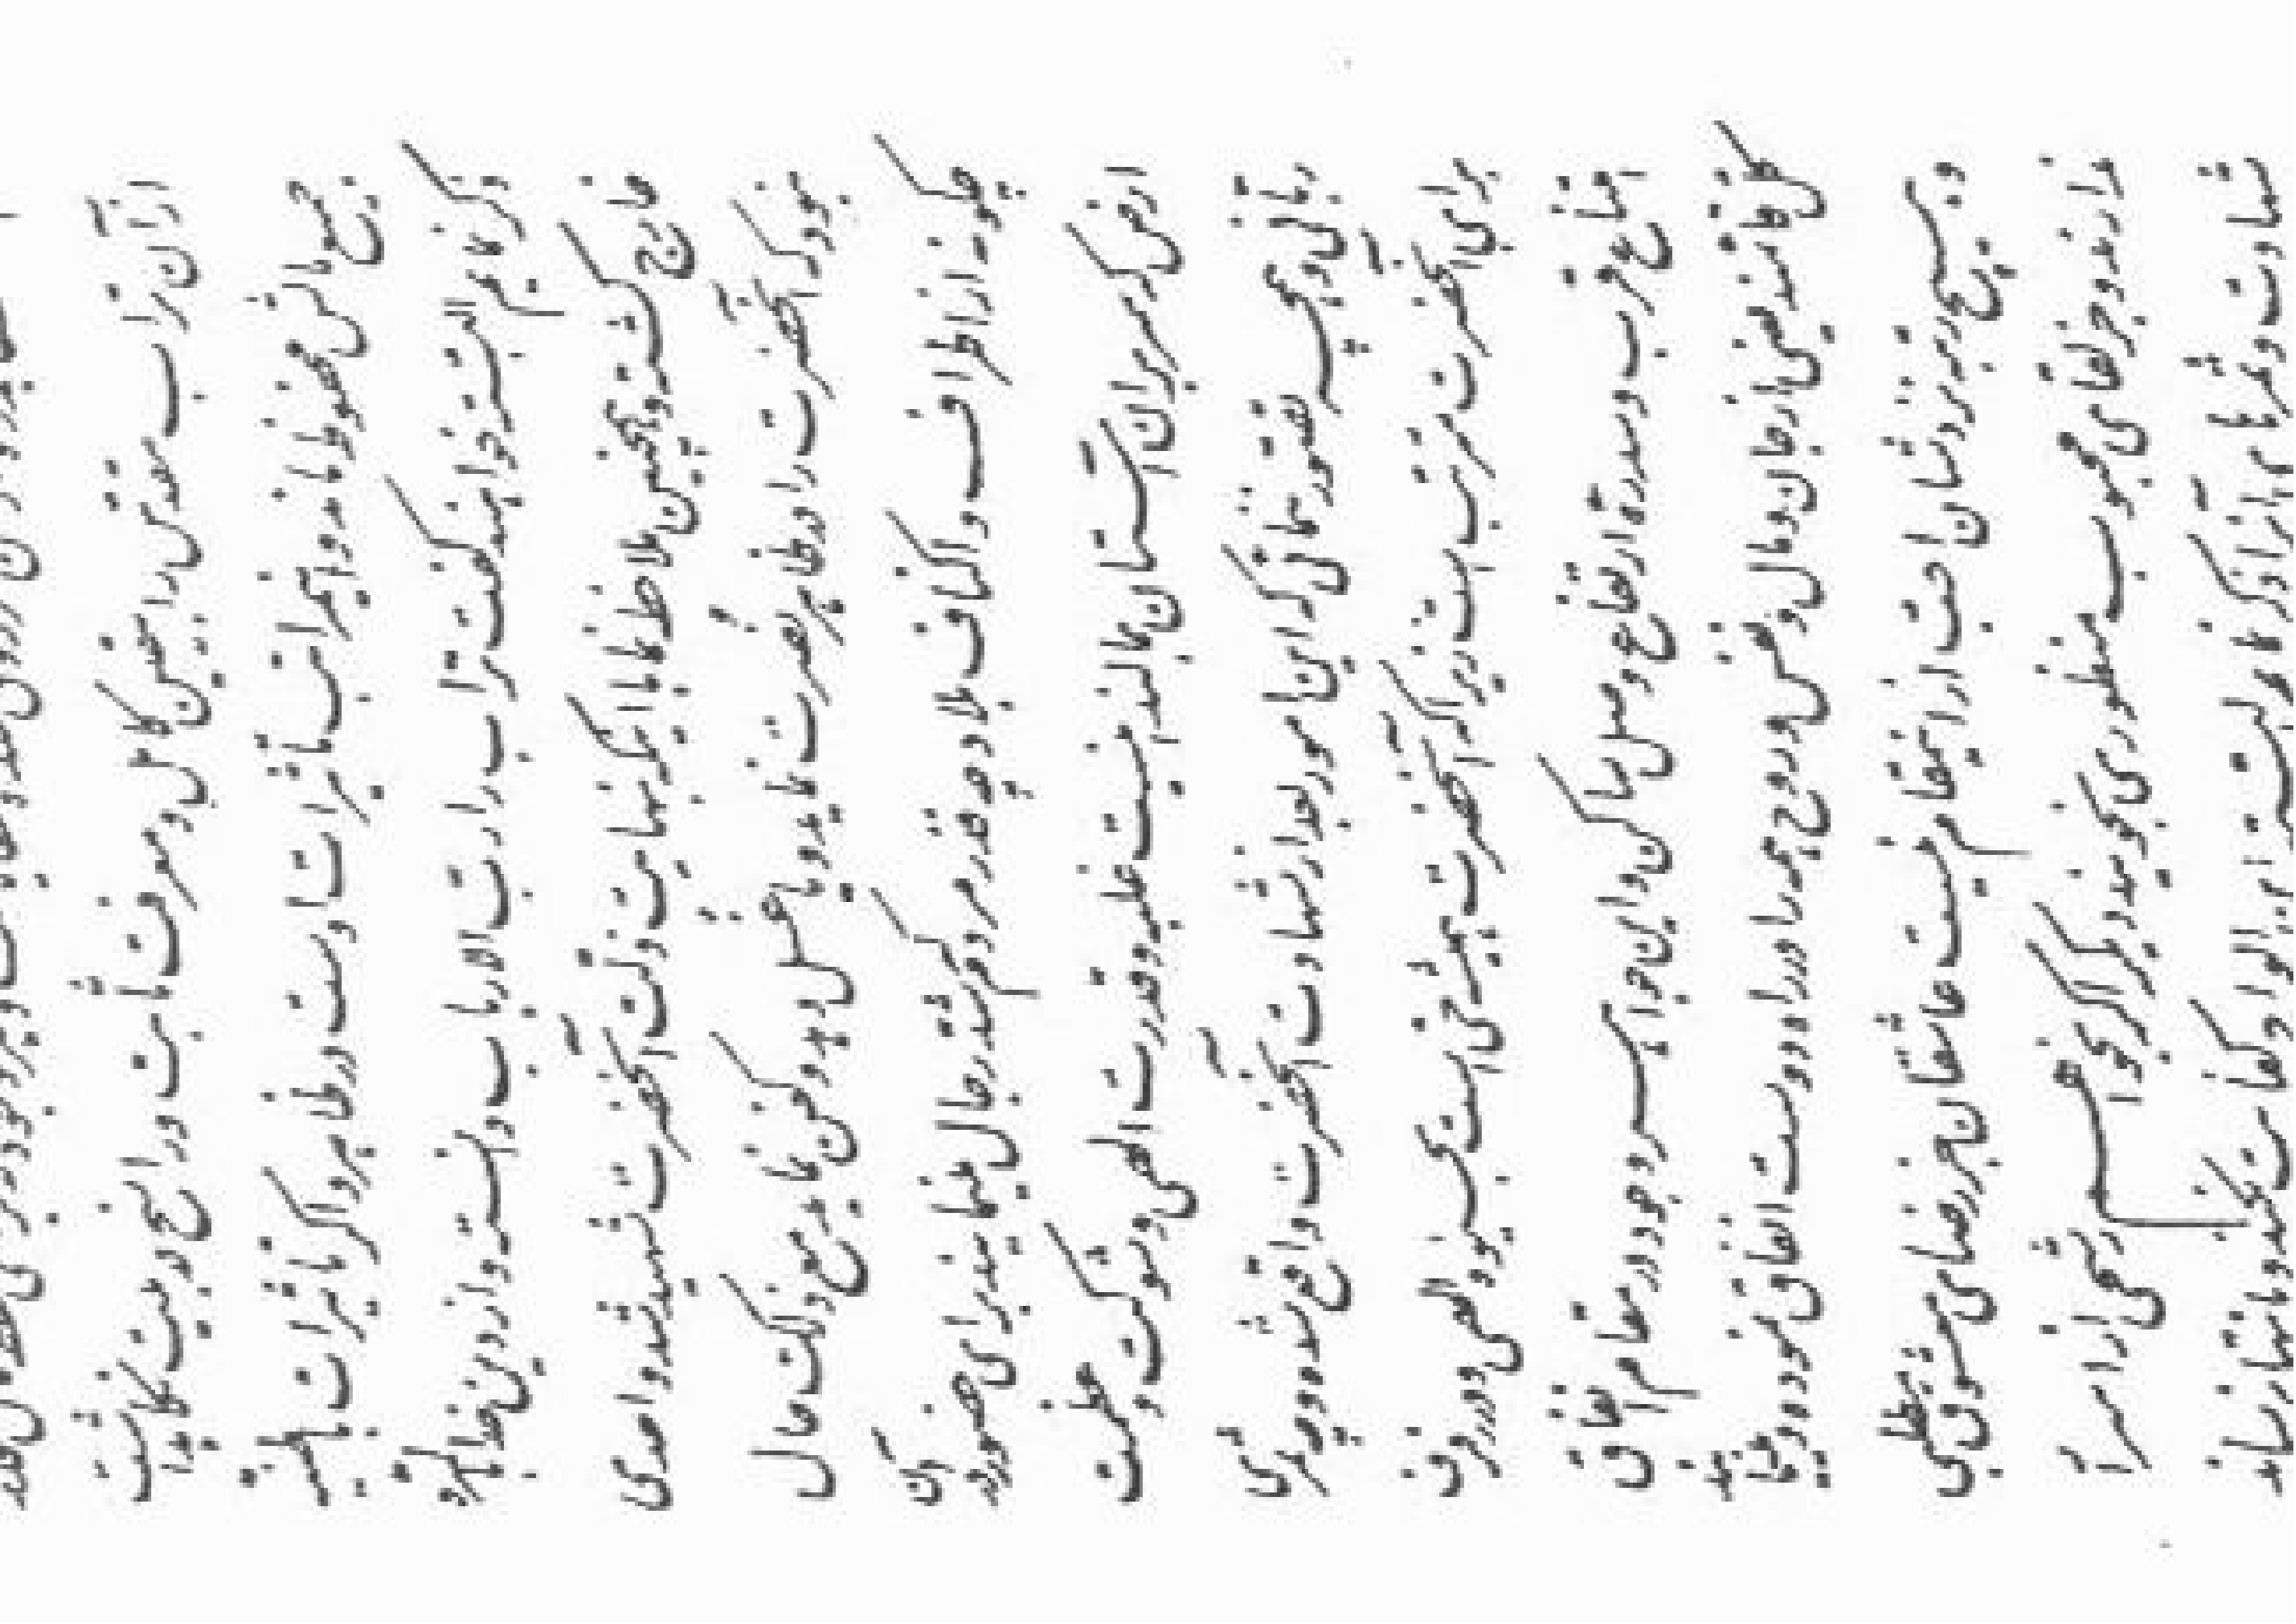 از آن تراب مقدس را بیقین کامل و معرفت ثابت و راسخ در بیت نگاه داشت
جمیع مالش محفوظ ماند و این مراتب تأثیرات اوست در ظاهر و اگر تأثیرات باطنیه
ذکر نمایم البته خواهند گفت تراب را رب الارباب دانسته و از دین خدا بالمره
خارج گشته و همچنین ملاحظه نما با اینکه بنهایت ذلت آنحضرت شهید شد و احدی
نبود که آنحضرت را در ظاهر نصرت نماید و یا غسل دهد و کفن نماید مع ذلک حال
چگونه از اطراف و اکناف بلاد چه قدر مردم که شدّ رحال مینمایند برای حضور در آن
ارض که سر بر آن آستان بمالند اینست غلبه و قدرت الهی و شوکت و عظمت
ربانی و همچه تصور ننمائی که این امور بعد از شهادت آنحضرت واقع شده و چه ثمری
برای آنحضرت مترتب است زیرا که آنحضرت همیشه حی است بحیوة الهی و در رفرف
امتناع قرب و سدرهٔ ارتفاع وصل ساکن و این جواهر وجود در مقام انفاق
کل قائمند یعنی از جان و مال و نفس و روح همه را در راه دوست انفاق نموده و مینمایند
و هیچ رتبه نزدشان احب از اینمقام نیست عاشقان جز رضای معشوق مطلبی
ندارند و جز لقای محبوب منظوری نجویند دیگر اگر بخواهم رشحی از اسرار
شهادت و ثمرهای آنرا ذکر نمایم البته این الواح کفایت نکند و بانتها نرساند